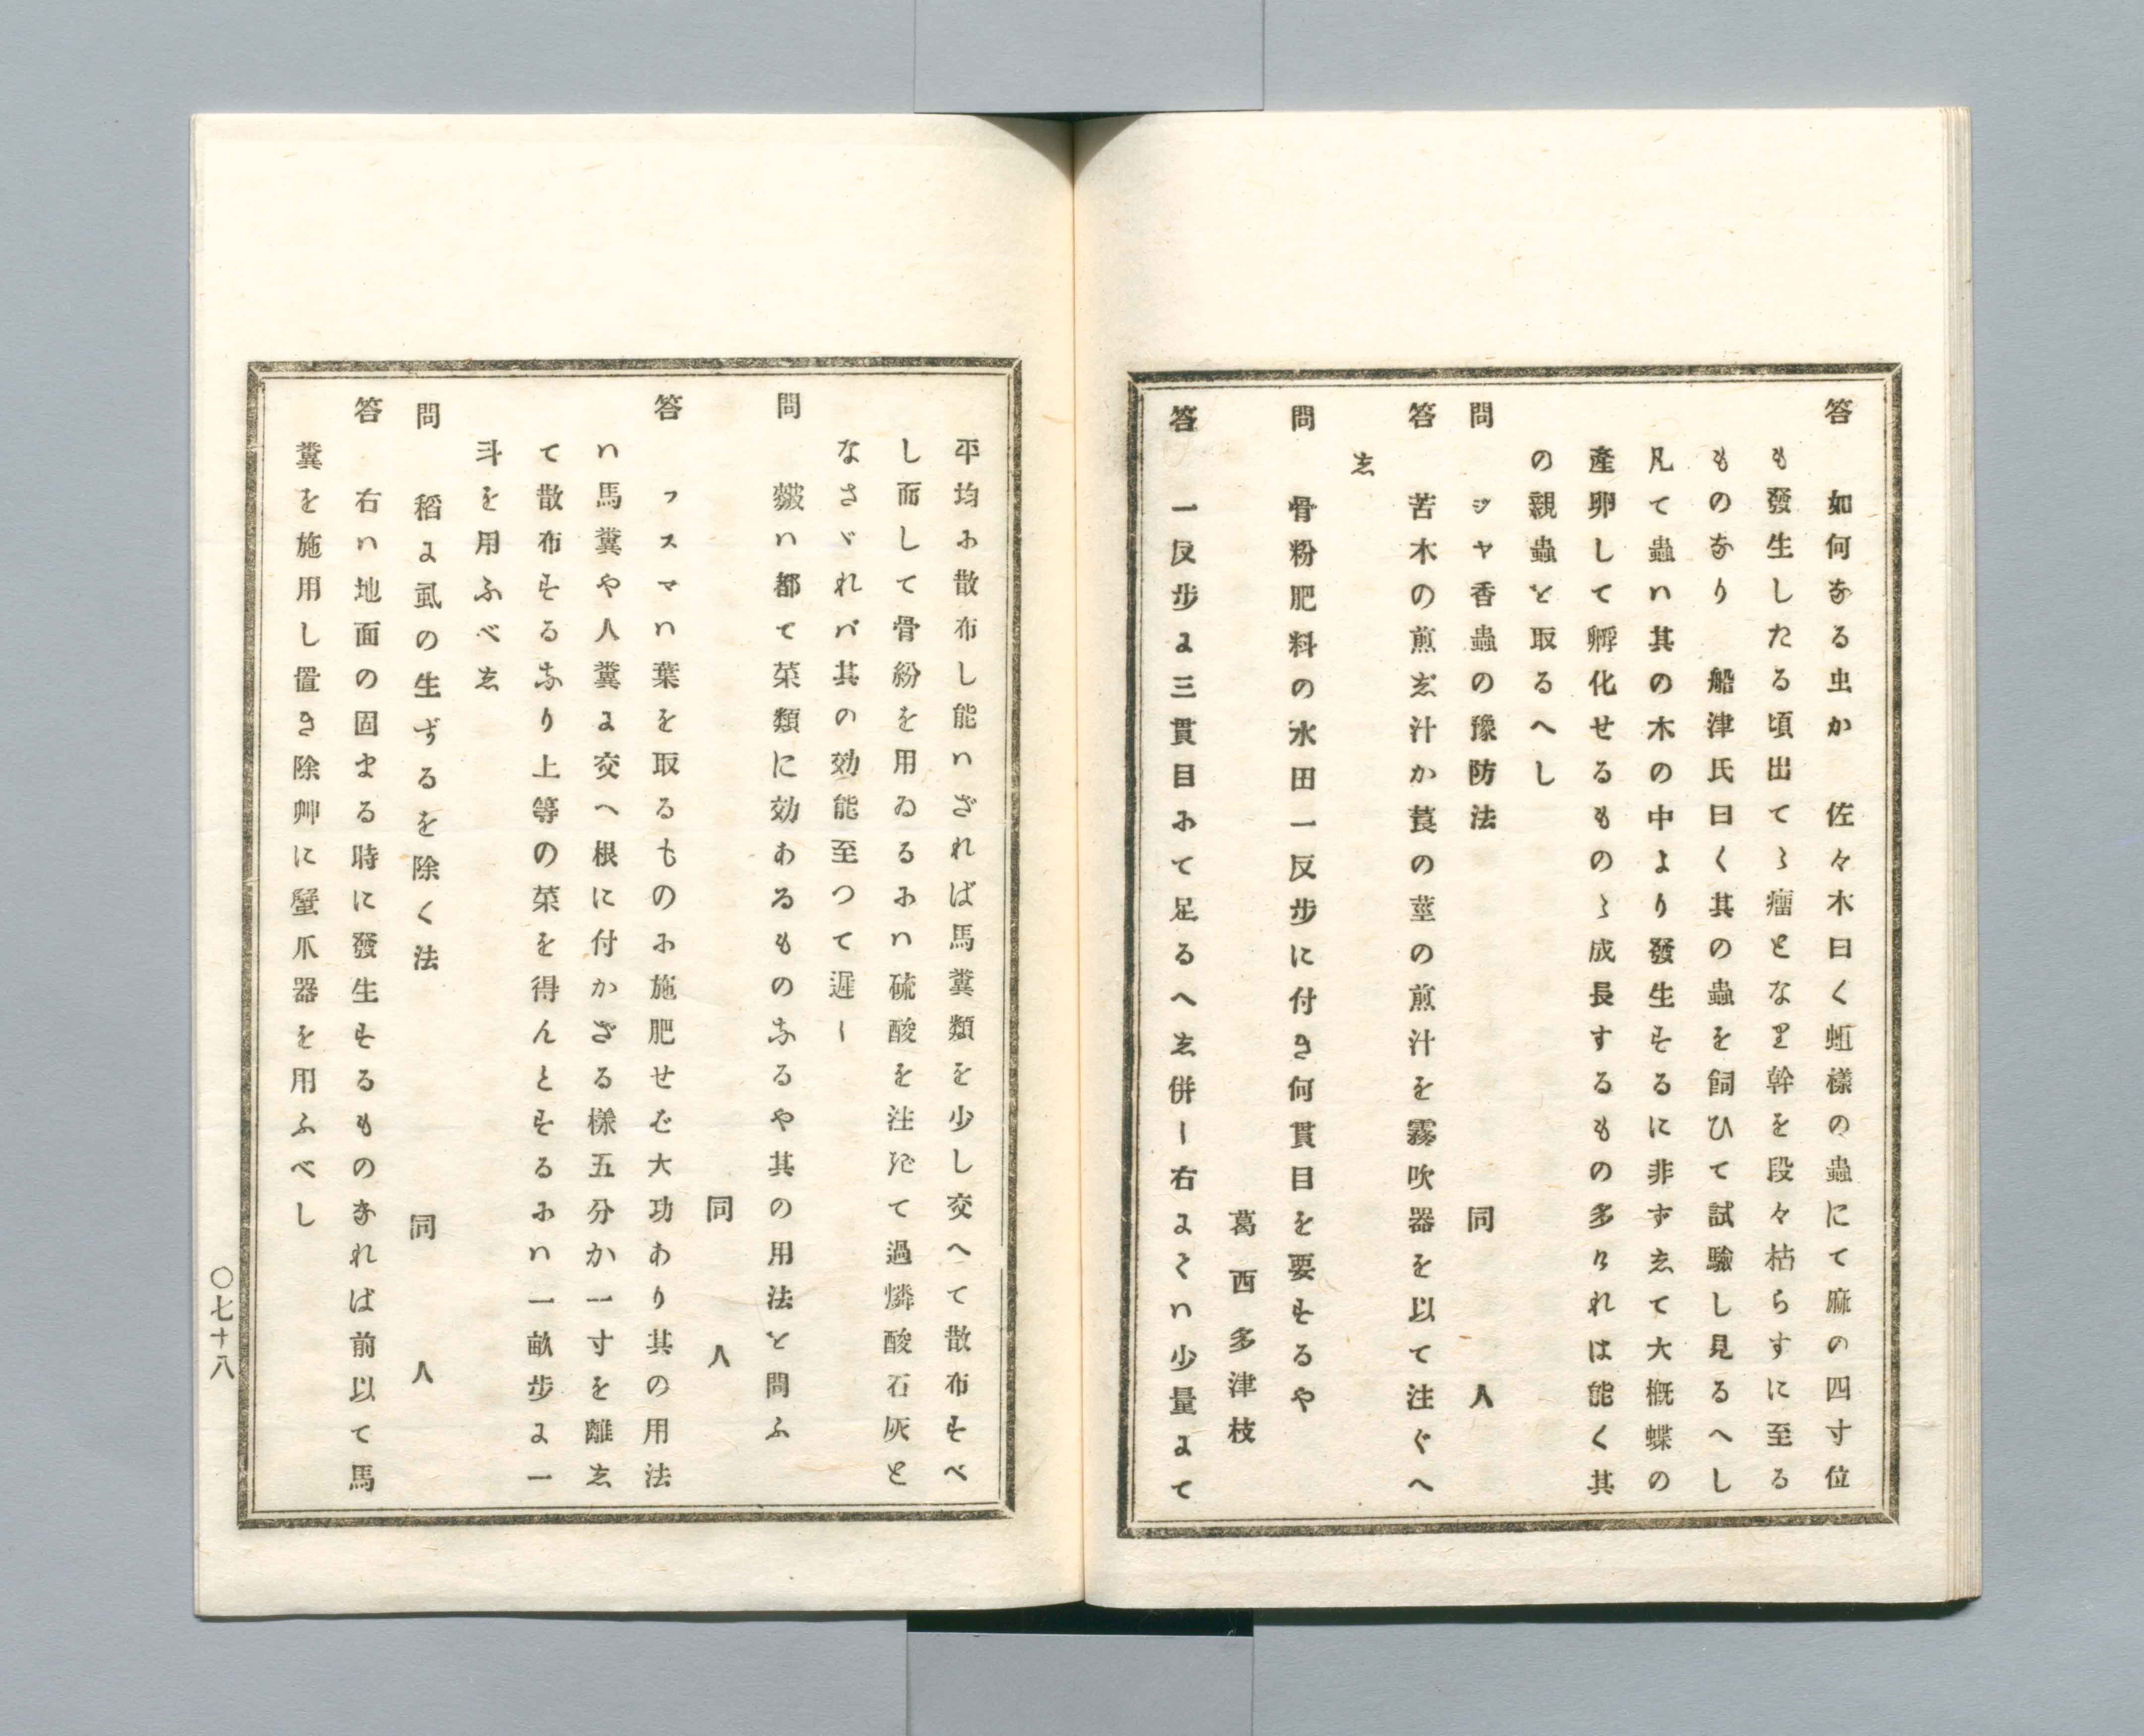 答　如何なる虫か　佐々木曰く蛆樣の蟲にて麻の四寸位
も發生したる頃出てゝ瘤となり幹を段々枯らすに至る
ものなり　船津氏曰く其の蟲を飼ひて試驗し見るへし
凡て蟲ハ其の木の中より發生するに非ずして大概蝶の
產卵して孵化せるものゝ成長するもの多けれは能く其
の親蟲を取るへし
問　ジヤ香蟲の豫防法　同人
答　苦木の煎じ汁か莨の莖の煎汁を霧吹器を以て注ぐへ
し
問　骨粉肥料の水田一反步に付き何貫目を要するや
葛西多津枝
答　一反步に三貫目にて足るへし併し右にてハ少量にて
平均に散布し能ハざれば馬糞類を少し交へて散布すべ
し而して骨粉を用ゐるにハ硫酸を注ぎて過燐酸石灰と
なさゞれバ其の効能至つて遲し
問　麩ハ都て菜類に効あるものなるや其の用法を問ふ
同人
答　フスマハ葉を取るものに施肥せば大功あり其の用法
ハ馬糞や人糞に交へ根に付かざる樣五分か一寸を離し
て散布するなり上等の菜を得んとするにハ一畝步に一
斗を用ふべし
問　稻に虱の生ずるを除く法　同人
答　右ハ地面の固まる時に發生するものなれば前以て馬
糞を施用し置き除艸に蟹爪器を用ふべし
〇七十八